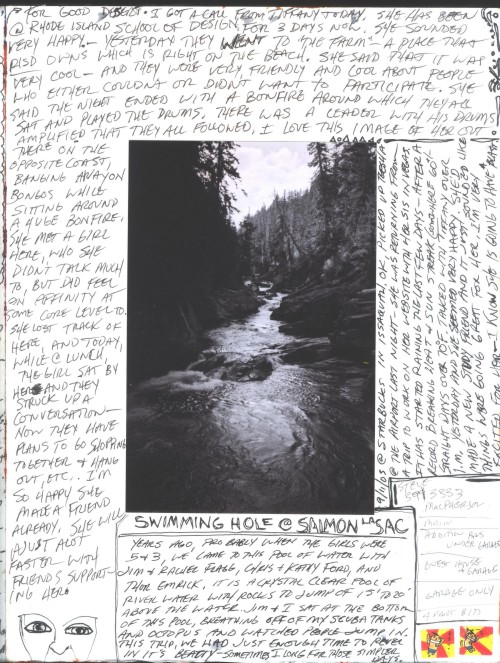 FOR GOOD DEBTS. I GOT A CALL FROM TIFFANY TODAY. SHE HAS BEEN
@ RHODE ISLAND SCHOOL OF DESIGN FOR 3 DAYS NOW. SHE SOUNDED
VERY HAPPY - YESTERDAY THEY WENT TO "THE FARM" - A PLACE THAT
RISD OWNS WHICH IS RIGHT ON THE BEACH. SHE SAID THAT IT WAS
VERY COOL - AND THEY WERE VERY FRIENDLY AND COOL ABOUT PEOPLE
WHO EITHER COULDN'T OR DIDN'T WANT TO PARTICIPATE. SHE
SAID THE NIGHT ENDED WITH A BONFIRE AROUND WHICH THEY ALL
SAT AND PLAYED THE DRUMS, THERE WAS A LEADER WITH HIS DRUMS
AMPLIFIED THAT THEY ALL FOLLOWED, I LOVE THIS IMAGE OF HER OUT
THERE ON THE
OPPOSITE COAST,
BANGING AWAY ON
BONGOS WHILE
SITTING AROUND
A HUGE BONFIRE,
SHE MET A GIRL
HERE, WHO SHE
DIDN'T TALK MUCH
TO, BUT DID FEEL
AN AFFINITY AT
SOME CORE LEVEL TO.
SHE LOST TRACK OF
HERE, AND TODAY,
WHILE @ LUNCH,
THE GIRL SAT BY
HER AND THEY
STRUCK UP A
CONVERSATION -
NOW THEY HAVE
PLANS TO GO SHOPPING
TOGETHER & HANG
OUT, ETC.. I'M
SO HAPPY SHE
MADE A FRIEND
ALREADY. SHE WILL
ADJUST ALOT
FASTER - WITH
FRIENDS SUPPORT-
ING HER
9/1/03 @ STARBUCKS IN ISSAQUAH, OK, PICKED UP
@ THE AIRPORT LAST NIGHT - SHE WAS RETURNING FROM
A TRIP TO WORK ON HER WEBSITE WITH HER SISTER
IT HAS STARTED RAINING THE LAST FEW DAYS - AFTER A
RECORD BREAKING LIGHT & SUN STREAK SOMEWHERE 60+
STRAIGHT DAYS OVER 70°F. TALKED WITH TIFFANY OVER
I.M. YESTERDAY AND SHE SEEMED VERY HAPPY, SHE'D
MADE A NEW STUDY FRIEND AND IT JUST SOUNDED LIKE
THINGS WERE GOING GREAT FOR HER. I'M REAL
EXCITED FOR HER - I KNOW SHE IS GOING TO HAVE
SWIMMING HOLE @ SALMON LA SAC
YEARS AGO, PROBABLY WHEN THE GIRLS WERE
5 & 3, WE CAME TO THIS POOL OF WATER WITH
JIM & RACHEL FLAGG, CHRIS & KATHY FORD, AND
THOR EMRICK, IT IS A CRYSTAL CLEAR POOL OF
RIVER WATER WITH ROCKS TO JUMP OF 15' TO 20'
ABOVE THE WATER. JIM & I SAT AT THE BOTTOM
OF THIS POOL, BREATHING OFF OF MY SCUBA TANKS
AND OCTOPUS AND WATCHED PEOPLE JUMP IN.
THIS TRIP, WE HAD JUST ENOUGH TIME TO REVEL
IN IT'S BEAUTY - SOMETIMES I LONG FOR THOSE SIMPLER
DAYS
GARAGE ONLY